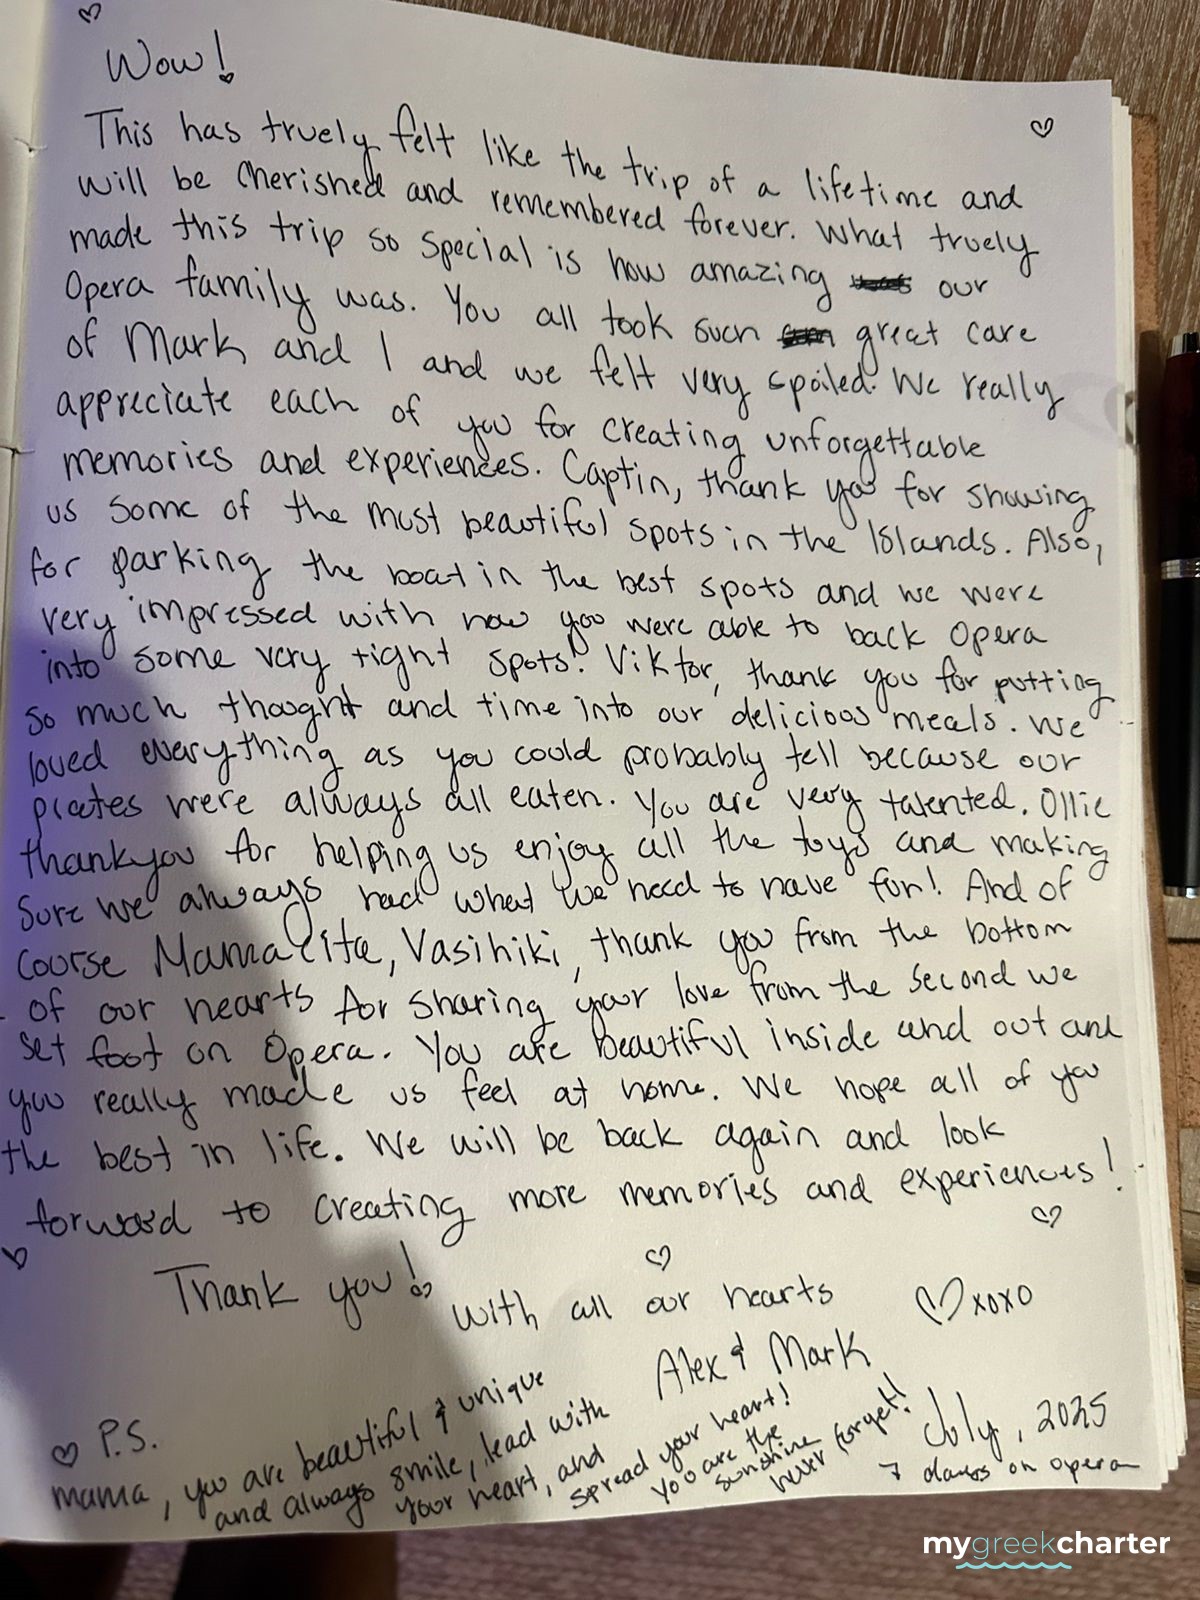 Wow!
This has truely felt like the trip of a lifetime and
will be cherished and remembered forever. What truely
made this trip so special is how amazing our
Opera family was. You all took such great care
of Mark and I and we felt very spoiled. We really
appreciate each of you for creating unforgettable
memories and experiences. Captin, thank you for showing
us some of the most beautiful spots in the Islands. Also,
for parking the boat in the best spots and we were
very impressed with how you were able to back Opera
into some very tight spots! Viktor, thank you for putting
so much thought and time into our delicious meals. We
loved everything as you could probably tell because our
plates were always all eaten. You are very talented. Ollie
thankyou for helping us enjoy all the toys and making
sure we always had what we need to have fun! And of
course Mamacita, Vasihiki, thank you from the bottom
of our hearts for sharing your love from the second we
set foot on Opera. You are beautiful inside and out and
you really made us feel at home. We hope all of you
the best in life. We will be back again and look
forward to creating more memories and experiences!
Thank you!
with all our hearts
xoxo
Alex & Mark
July, 2025
7 days on opera
P.S.
mama, you are beautiful & unique
and always smile, lead with
your heart, and
spread your heart!
You are the
sunshine
never forget!
mygreekcharter